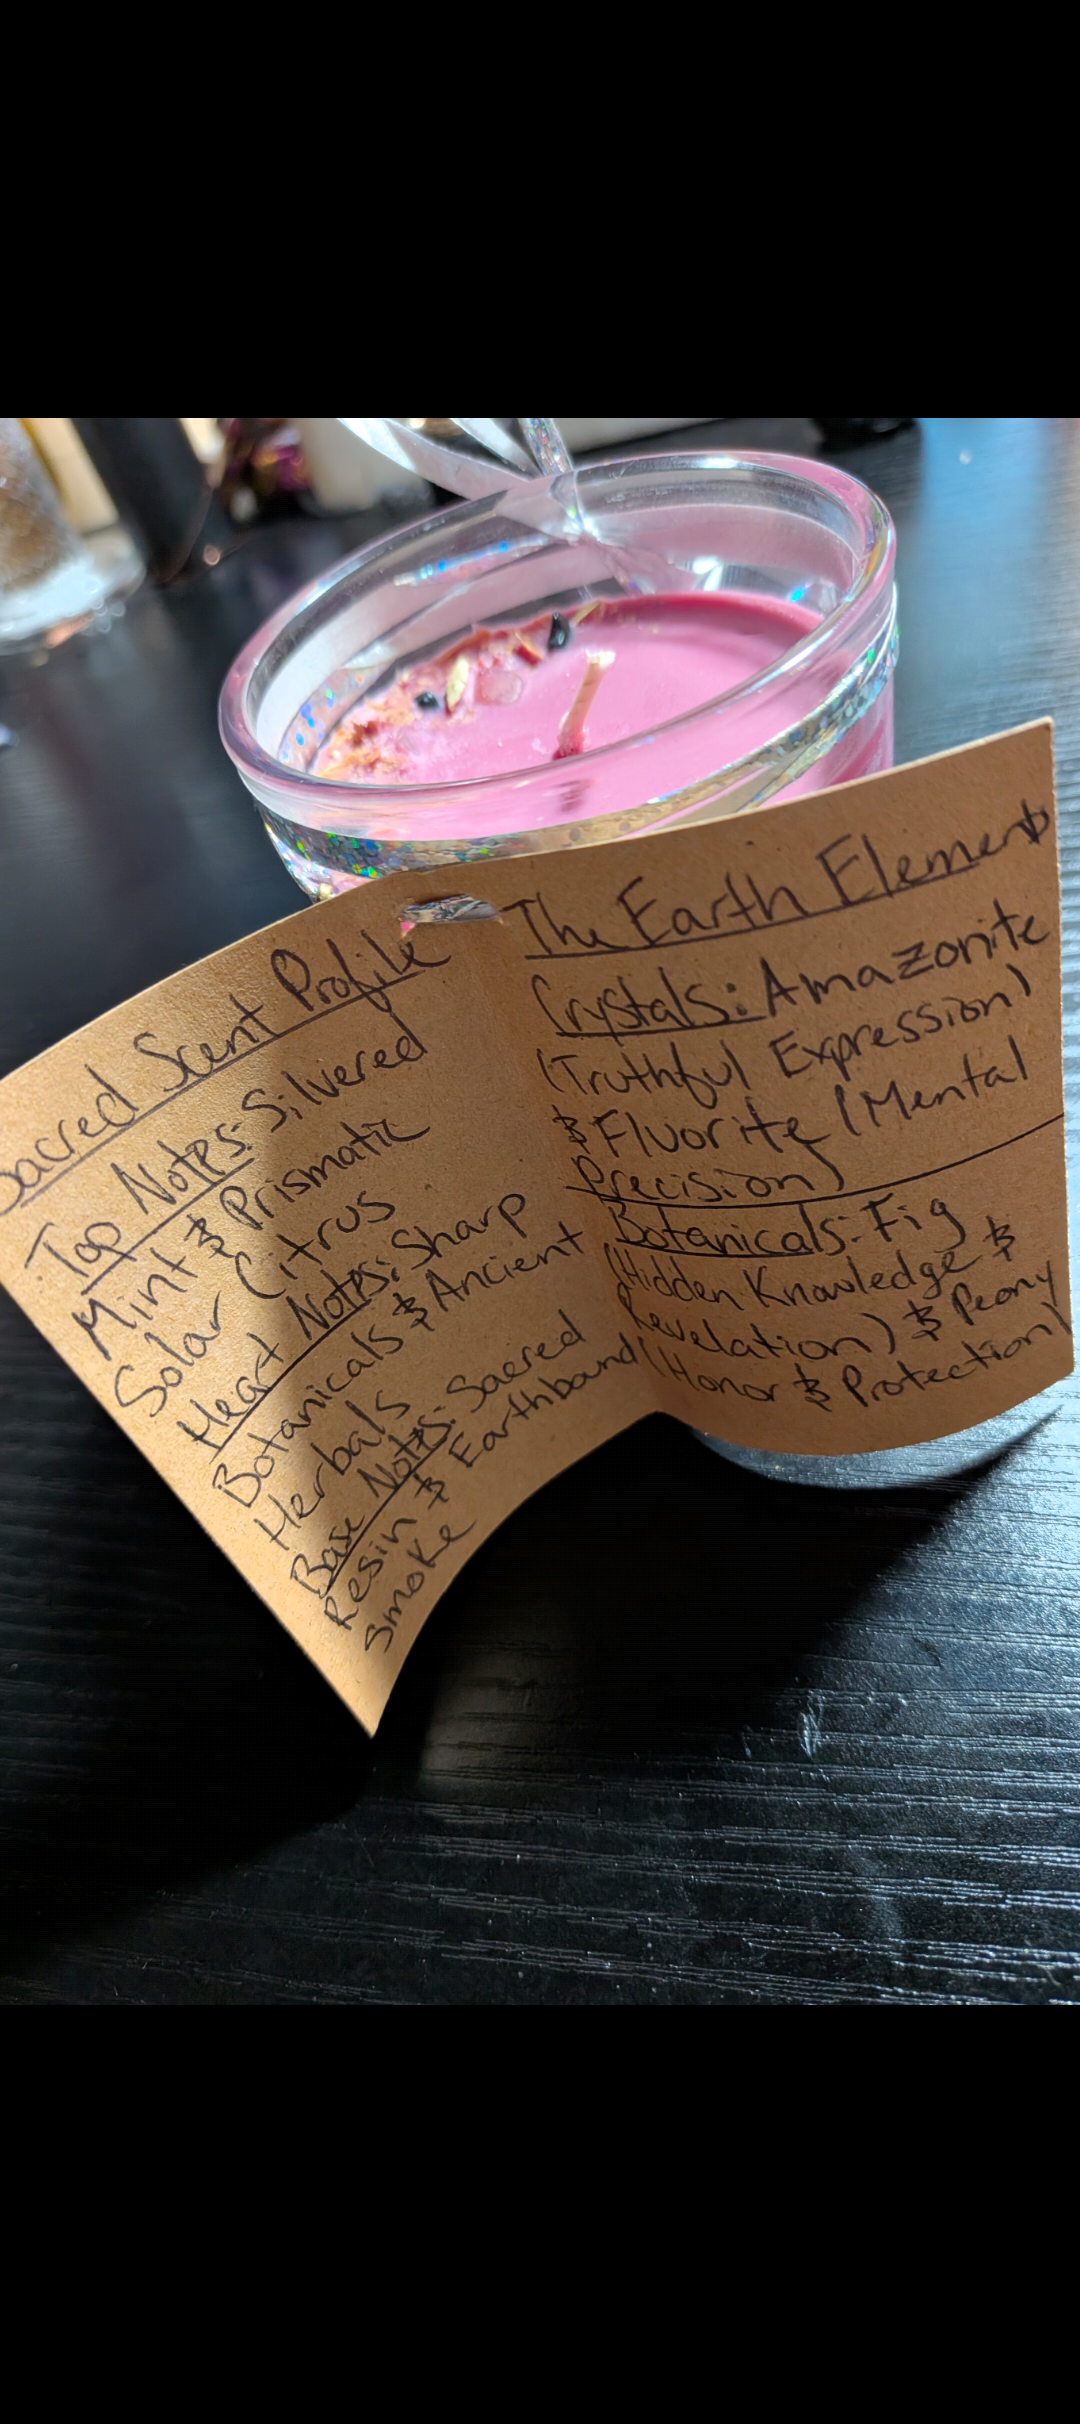 Sacred Scent Profile
Top Notes: Silvered
Mint & Prismatic
Solar Citrus
Heart Notes: Sharp
Botanicals & Ancient
Herbals
Base Notes: Sacred
Resin & Earthbound
Smoke
The Earth Elements
Crystals: Amazonite
(Truthful Expression)
& Fluorite (Mental
Precision)
Botanicals: Fig
(Hidden Knowledge &
Revelation) & Peony
(Honor & Protection)